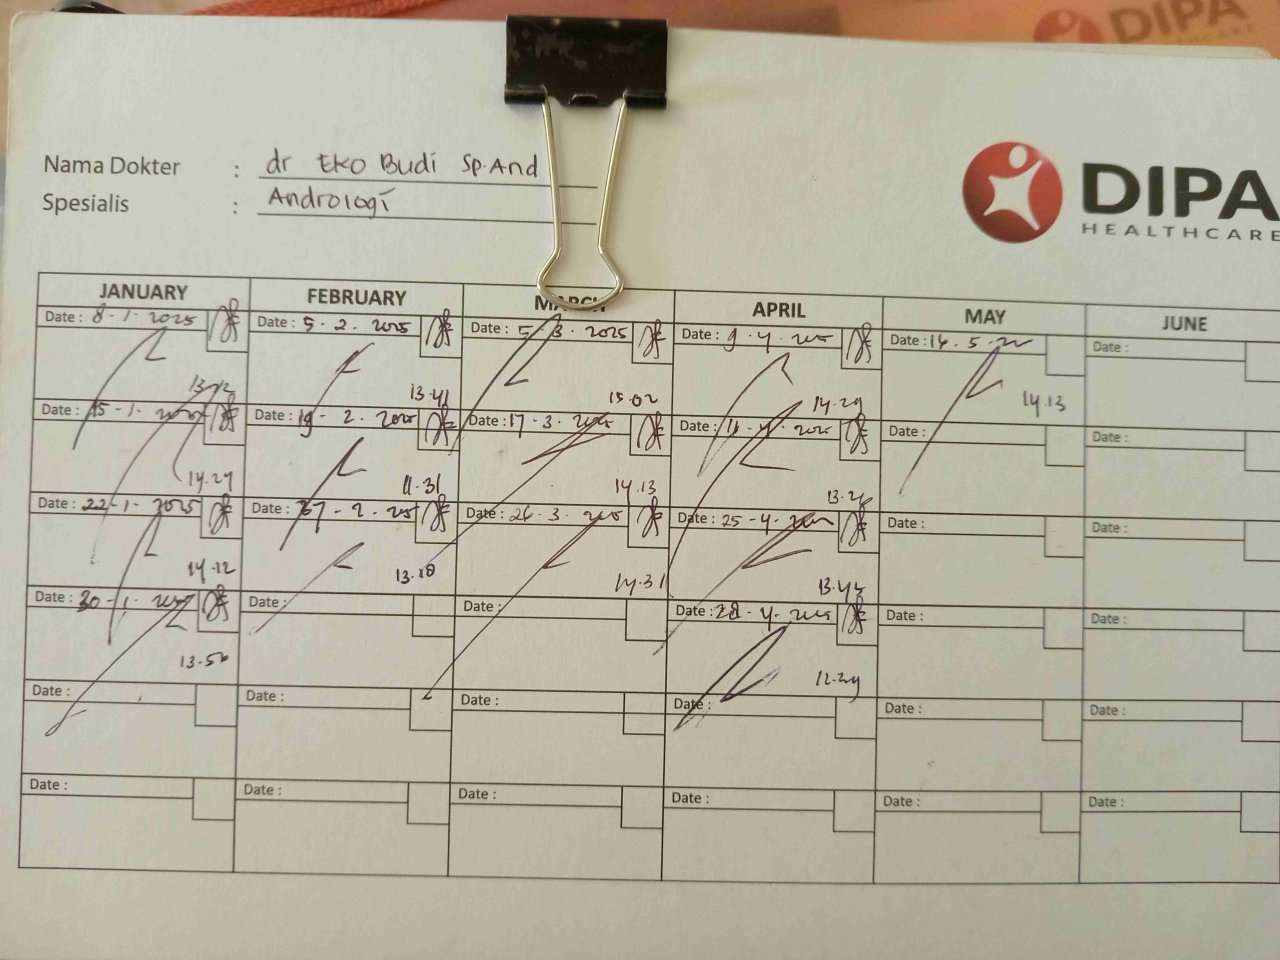 DIPA
Nama Dokter : dr Eko Budi Sp.And
Spesialis : Andrologi
DIPA
HEALTHCARE
JANUARY FEBRUARY MARCH APRIL MAY JUNE
Date : 8-1-2025 Date : 5.2.2025 Date : 5 3.2025 Date : 9.4. Date : 14.5. Date :
13.12 13.41 15.02 14.29 14.13
Date : 15-1. Date : 19-2.2025 Date : 17-3. Date : Date : Date :
14.27 11.31 14.13 13.26
Date : 22-1.2025 Date : Date : 26-3. Date : 25-4. Date : Date :
14.12 13.18 14.31 13.45
Date : 30-1. Date : Date : Date : 28-4. Date : Date :
13.56 12.29
Date : Date : Date : Date : Date : Date :
Date : Date : Date : Date : Date : Date :